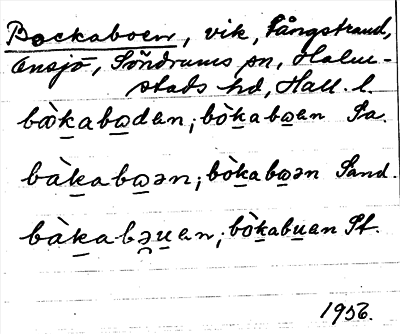 Bockaboen, vik, Fångstrand,
Ensjö, Söndrums sn, Halm-
stads hd, Hall. l.
bòk̲abo̲dan; bòk̲abo̲en Sa.
bàk̲abo̲ən; bòk̲abo̲ən Sand.
bàk̲abə̯u̲en; bòk̲abu̲an St.
1956.